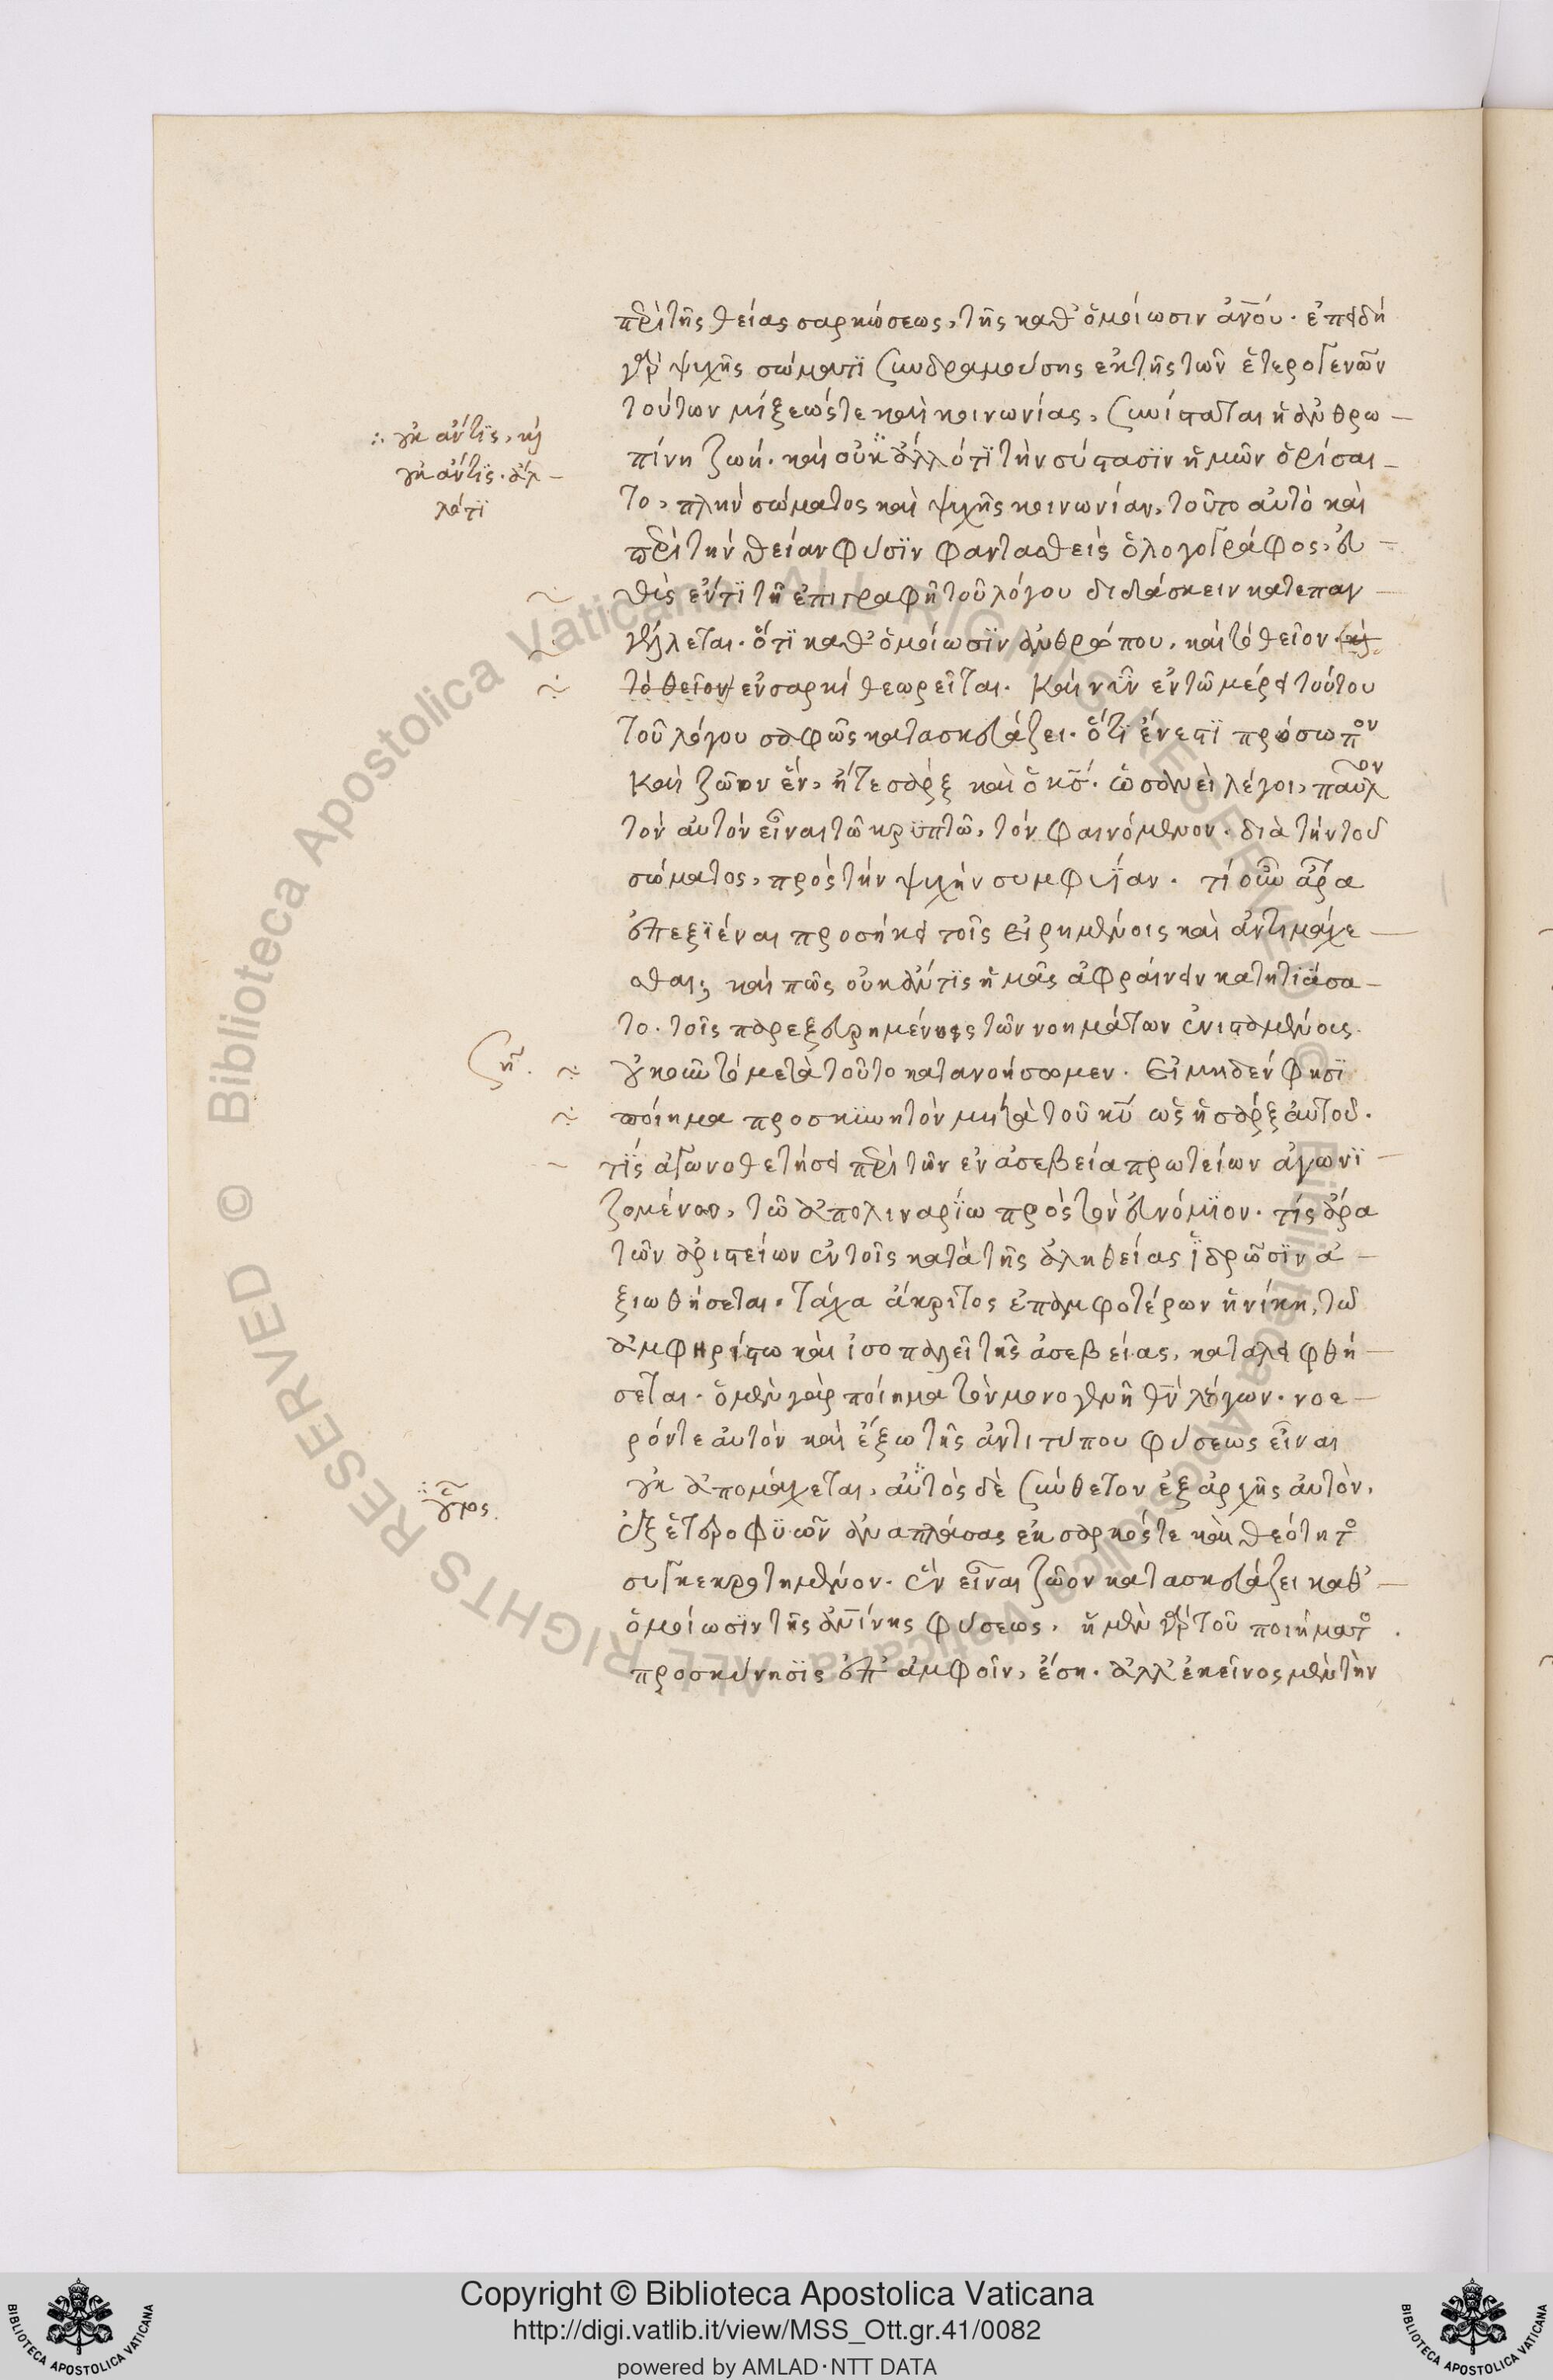 περὶ τῆς θείας σαρκώσεως, τῆς καθ' ὁμοίωσιν ἀνου. ἐπειδὴ
γὰρ ψυχῆς σώματϊ συνδραμούσης ἐκ τῆς τῶν ἑτερογενῶν
τούτων μίξεώς τε καὶ κοινωνίας, συνίσταται ἡ ἀνθρω
∴ οὐκ ἄν τϊς, καὶ
πίνη ζωή. καὶ οὐκ ἄλλό τϊ τὴν σύστασϊν ἡμῶν ὁρίσαι
οὐκ ἄν τϊς. ἀλ
το, πλὴν σώματος καὶ ψυχῆς κοινωνίαν, τοῦτο αὐτὸ καὶ
λό τϊ
περὶ τὴν θείαν φύσϊν φαντασθεὶς ὁ λογογράφος, εὐ
θὺς ἐν τῆ ἐπιγραφῆ τοῦ λόγου διδάσκειν κατεπαγ
γέλλεται. ὅτϊ καθ' ὁμοίωσϊν ἀνθρώπου, καὶ τὸ θεῖον. καὶ
τὸ θεῖον ἐν σαρκὶ θεωρεῖται. Καὶ νῦν ἐν τῶ μέρει τούτου
τοῦ λόγου σαφῶς κατασκευάζει. ὅτϊ ἕν ἐστϊ πρόσωπον
καὶ ζῶον ἕν, ἥ τε σὰρξ καὶ ὁ κσ. ὡς ἂν εἰ λέγοι, παῦλον
τὸν αὐτὸν εἶναι τῶ κρυπτῶ, τὸν φαινόμενον. διὰ τὴν τοῦ
σώματος, πρὸς τὴν ψυχὴν συμφυΐαν. τί οὖν ἄρα
ὑπεξϊέναι προσήκει τοῖς εἰρημένοις καὶ ἀντιμάχε
σθαι; καὶ πῶς οὐκ ἄν τϊς ἡμᾶς ἀφραίνειν κατητϊάσα
το. τοῖς παρεξευρημένοις τῶν νοημάτων ἐνισταμένοις.
οὐκοῦν τὸ μετὰ τοῦτο κατανοήσωμεν. Εἰ μηδέν φησϊ
ποίημα προσκυνητὸν μετὰ τοῦ κυ ὡς ἡ σὰρξ αὐτοῦ.
τίς ἀγωνοθετήσει περὶ τῶν ἐν ἀσεβεία πρωτείων ἀγωνϊ
ζομένω, τῶ ἀπολιναρίω πρὸς τὸν εὐνόμϊον. τίς ἄρα
τῶν ἀριστείων ἐν τοῖς κατὰ τῆς ἀληθείας ἱδρῶσϊν ἀ
ξιωθήσεται. Τάχα ἄκριτος ἐπ' ἀμφοτέρων ἡ νίκη, τῶ
ἀμφηρίστω καὶ ἰσοπαλεῖ τῆς ἀσεβείας, καταλειφθή
σεται. ὁ μὲν γὰρ ποίημα τὸν μονογενῆ θν λέγων. νοε
ρόν τε αὐτὸν καὶ ἔξω τῆς ἀντιτύπου φύσεως εἶναι
οὐκ ἀπομάχεται, αὐτὸς δὲ σύνθετον ἐξ ἀρχῆς αὐτὸν,
∴ οὗτος.
ἐξ ἑτεροφϋῶν ἀναπλάσας ἐκ σαρκός τε καὶ θεότητος
συγκεκροτημένον. ἓν εἶναι ζῶον κατασκευάζει καθ'
ὁμοίωσϊν τῆς ἀνίνης φύσεως. ἡ μὲν γὰρ τοῦ ποιήματος
προσκύνησϊς ἐπ' ἀμφοῖν, ἴση. ἀλλ' ἐκεῖνος μὲν τὴν
© Biblioteca Apostolica Vaticana ALL RIGHTS RESERVED
Copyright © Biblioteca Apostolica Vaticana
http://digi.vatlib.it/view/MSS_Ott.gr.41/0082
powered by AMLAD·NTT DATA
BIBLIOTECA APOSTOLICA VATICANA
BIBLIOTECA APOSTOLICA VATICANA